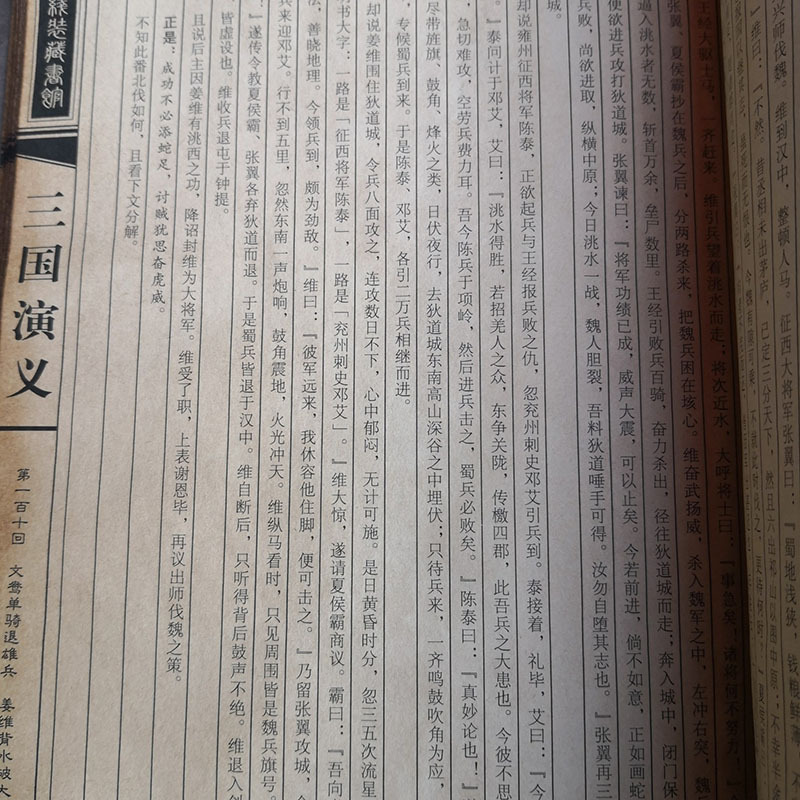 兴师伐魏。维到汉中，整顿人马。征西大将军张翼曰：『蜀地浅狭，钱粮鲜薄，
：『不然。昔丞相未出茅庐，已定三分天下，然且六出
王经大驱士马，一齐赶来。维引兵望着洮水而走；将次近水，大呼将士曰：『事急矣！诸将何不努力！』
张翼、夏侯霸抄在魏兵之后，分两路杀来，把魏兵困在垓心。维奋武扬威，杀入魏军之中，左冲右突，魏
逼入洮水者无数，斩首万余，垒尸数里。王经引败兵百骑，奋力杀出，径往狄道城而走；奔入城中，闭门保
便欲进兵攻打狄道城。张翼谏曰：『将军功绩已成，威声大震，可以止矣。今若前进，倘不如意，正如画蛇
兵败，尚欲进取，纵横中原；今日洮水一战，魏人胆裂，吾料狄道唾手可得。汝勿自堕其志也。』张翼再三
城。
却说雍州征西将军陈泰，正欲起兵与王经报兵败之仇，忽兖州刺史邓艾引兵到。泰接着，礼毕，艾曰：『今
。』泰问计于邓艾，艾曰：『洮水得胜，若招羌人之众，东争关陇，传檄四郡，此吾兵之大患也。今彼不思
，急切难攻，空劳兵费力耳。吾今陈兵于项岭，然后进兵击之，蜀兵必败矣。』陈泰曰：『真妙论也！』
尽带旌旗、鼓角、烽火之类，日伏夜行，去狄道城东南高山深谷之中埋伏；只待兵来，一齐鸣鼓吹角为应，
，专候蜀兵到来。于是陈泰、邓艾，各引二万兵相继而进。
却说姜维围住狄道城，令兵八面攻之，连攻数日不下，心中郁闷，无计可施。是日黄昏时分，忽三五次流星
明书大字：一路是「征西将军陈泰」，一路是「兖州刺史邓艾」。』维大惊，遂请夏侯霸商议。霸曰：『吾向
法，善晓地理。今领兵到，颇为劲敌。』维曰：『彼军远来，我休容他住脚，便可击之。』乃留张翼攻城，
兵来迎邓艾。行不到五里，忽然东南一声炮响，鼓角震地，火光冲天。维纵马看时，只见周围皆是魏兵旗号。
』遂传令教夏侯霸、张翼各弃狄道而退。于是蜀兵皆退于汉中。维自断后，只听得背后鼓声不绝。维退入剑
皆虚设也。维收兵退屯于钟提。
且说后主因姜维有洮西之功，降诏封维为大将军。维受了职，上表谢恩毕，再议出师伐魏之策。
正是：成功不必添蛇足，讨贼犹思奋虎威。
不知此番北伐如何，且看下文分解。
线装藏书馆
三国演义
第一百十回 文鸯单骑退雄兵 姜维背水破大